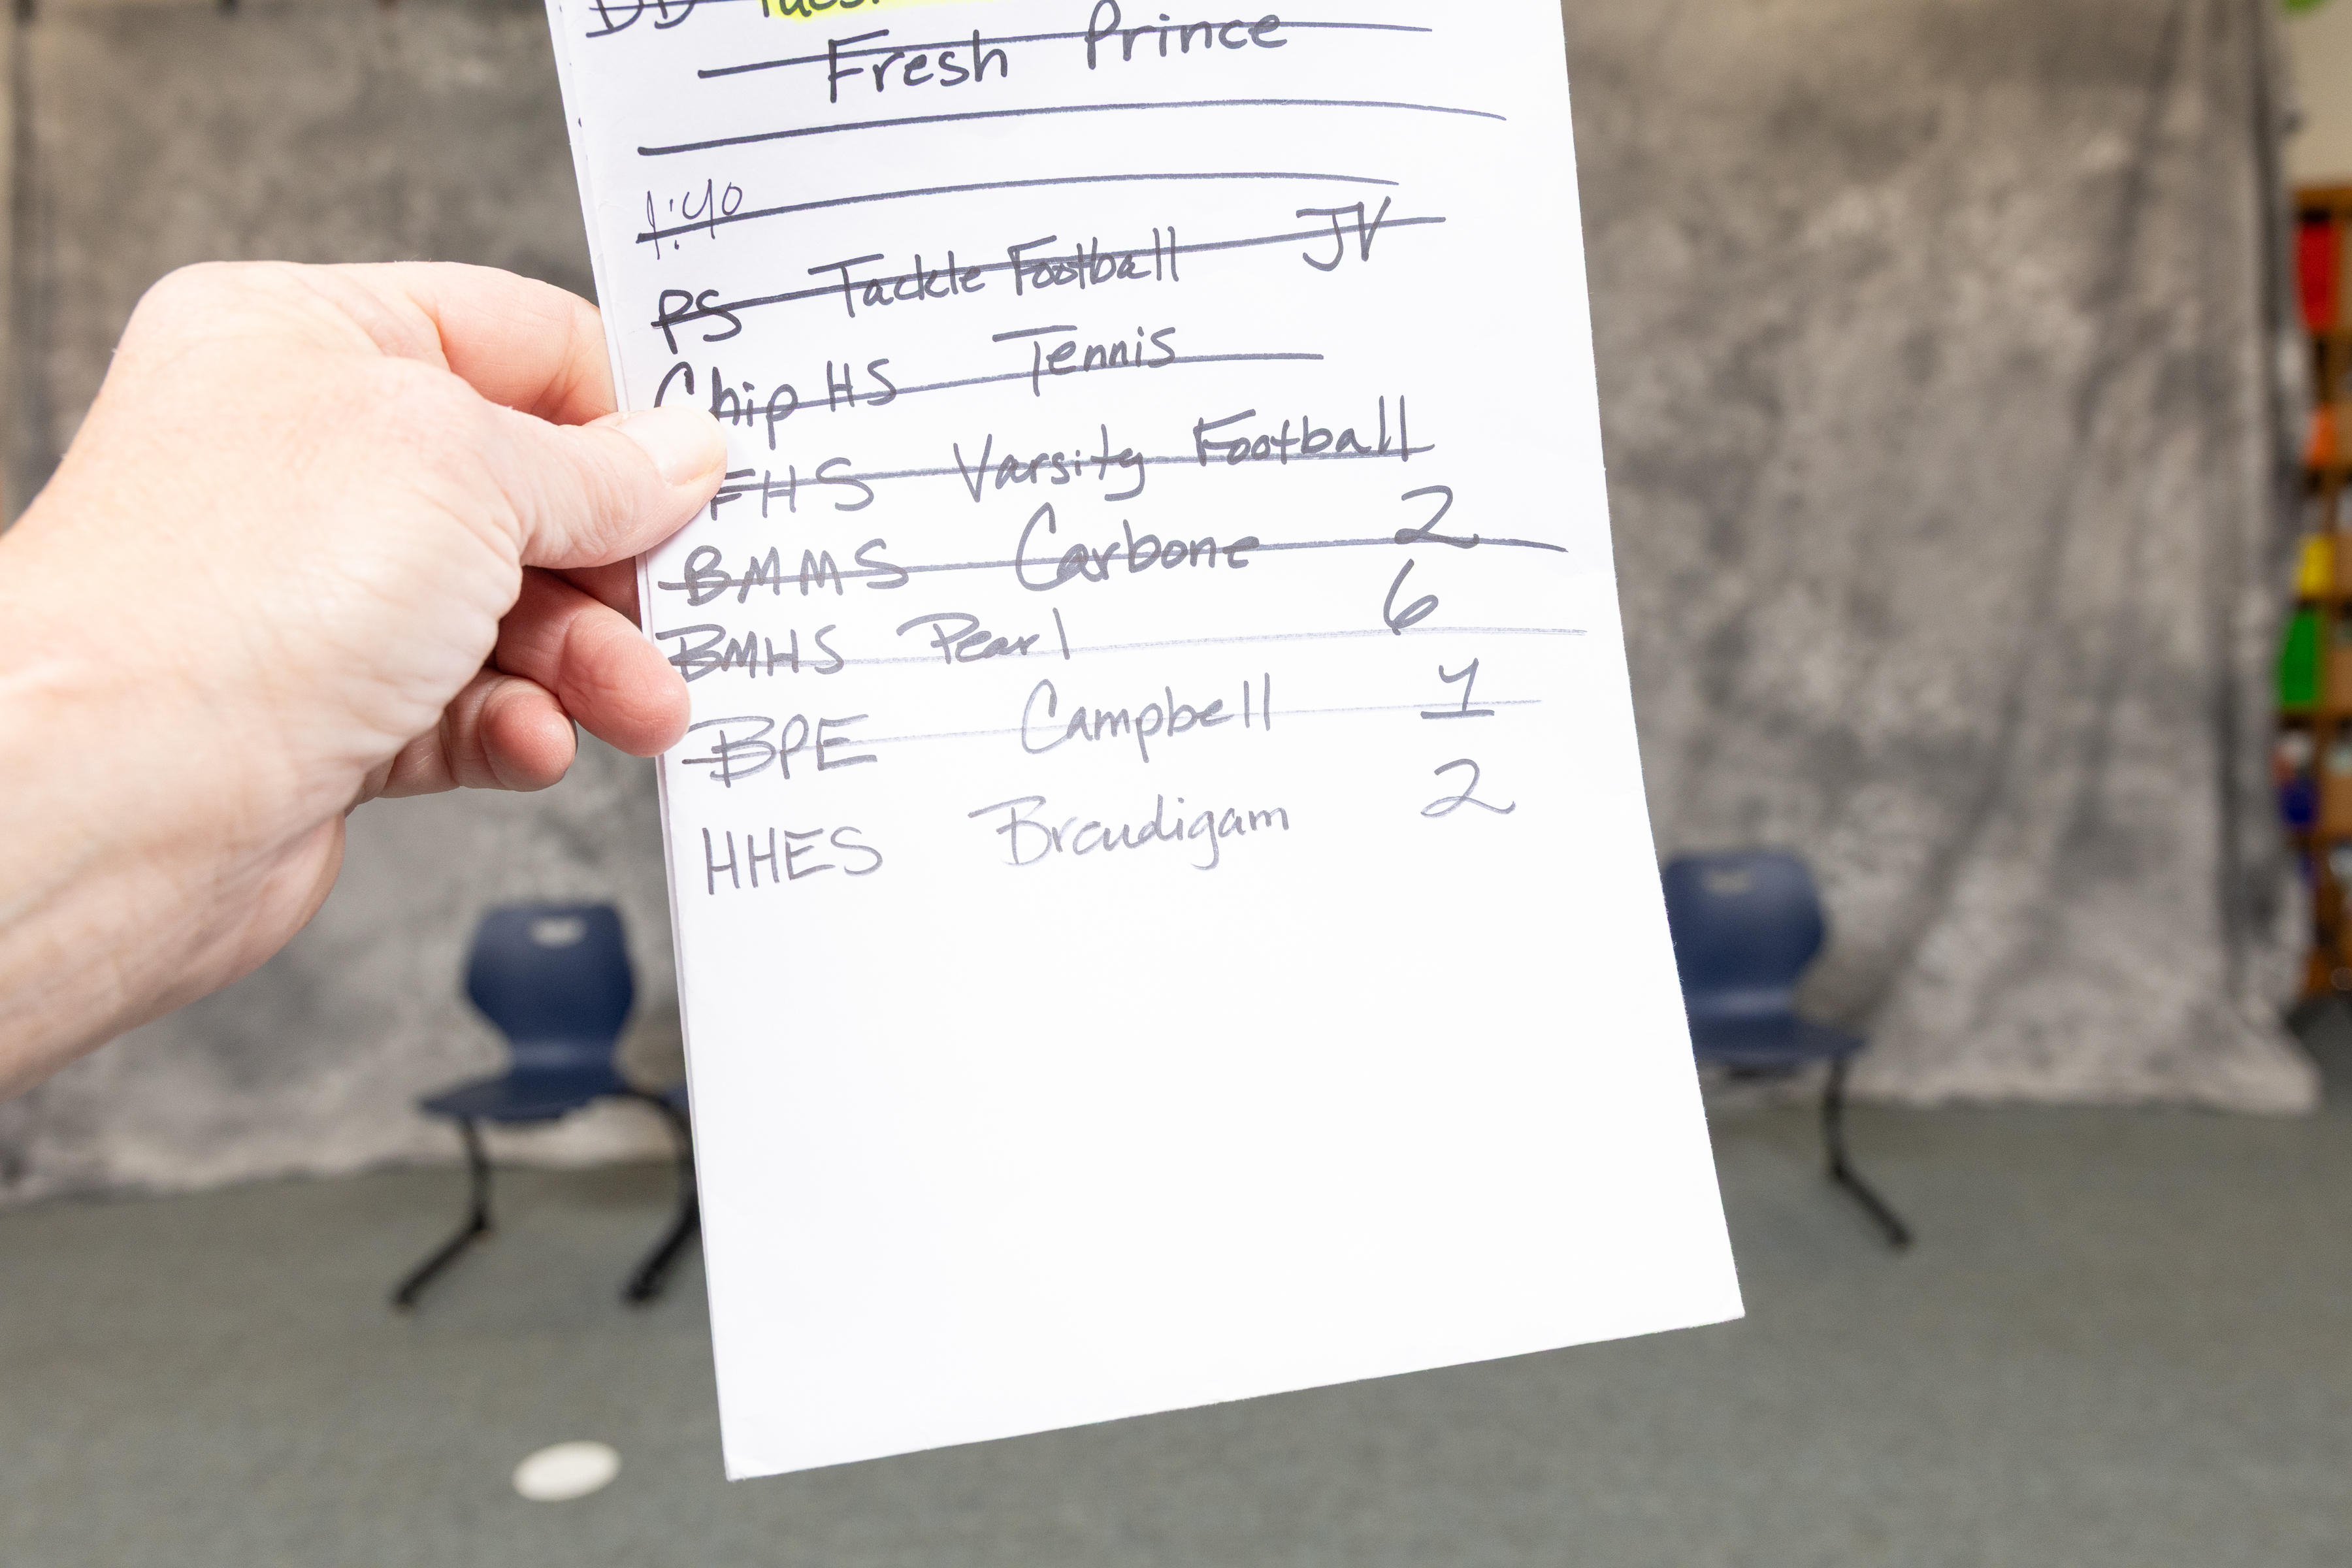 DD Tues.
Fresh Prince
1:40
PS Tackle Football JV
Chip HS Tennis
FHS Varsity Football
BMMS Carbone 2
BMHS Pearl 6
BPE Campbell
HHES Braudigam 2